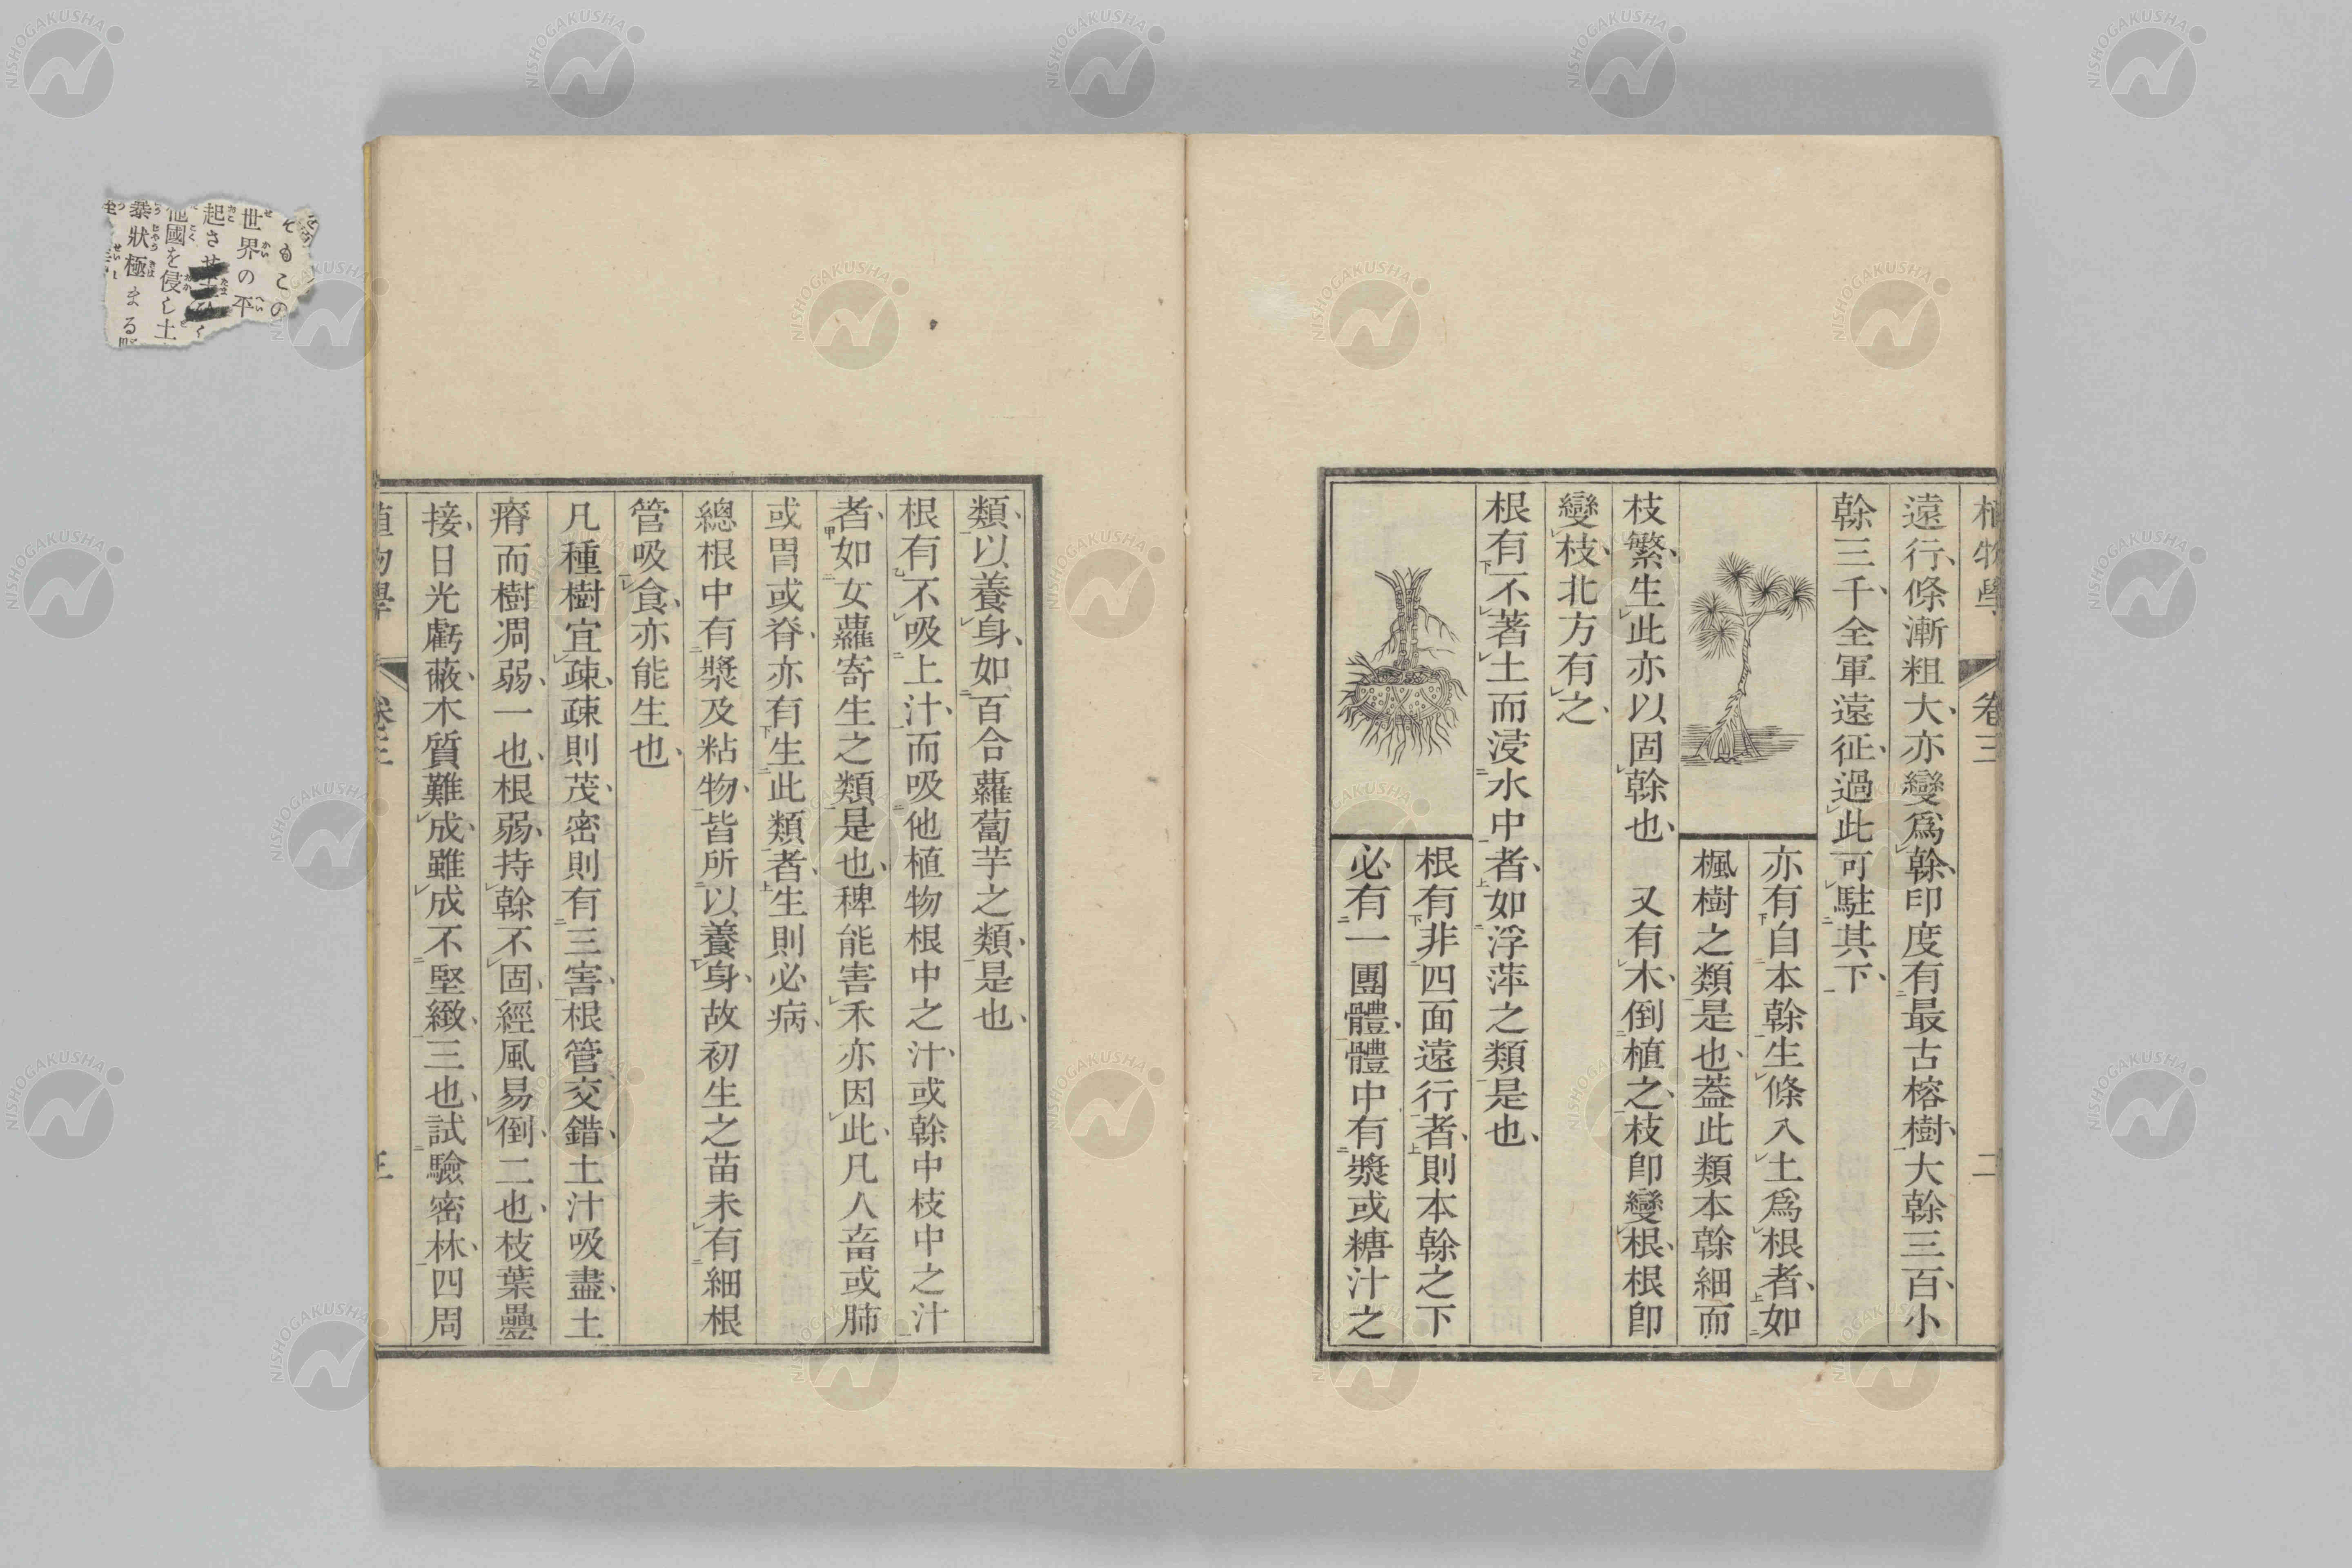 植物學 卷三 二
遠行、條漸粗大、亦變爲幹、印度有最古榕樹、大幹三百、小
幹三千、全軍遠征、過此可駐其下、
亦有自本幹生條入土爲根者、如
楓樹之類是也、葢此類本幹細而
枝繁生、此亦以固幹也、 又有木、倒植之、枝卽變根、根卽
變枝、北方有之、
根有不著土而浸水中者、如浮萍之類是也、
根有非四面遠行者、則本幹之下
必有一團體、體中有漿或糖汁之
類、以養身、如百合蘿蔔芋之類、是也、
根有不吸上汁、而吸他植物根中之汁、或幹中枝中之汁
者、如女蘿寄生之類是也、稗能害禾亦因此、凡人畜或肺
或胃或脊、亦有生此類者、生則必病、
總根中有漿及粘物、皆所以養身、故初生之苗未有細根
管吸食、亦能生也、
凡種樹宜疎、疎則茂、密則有三害、根管交錯、土汁吸盡、土
瘠而樹凋弱、一也、根弱、持幹不固、經風易倒、二也、枝葉疊
接、日光虧蔽、木質難成、雖成不堅緻、三也、試驗密林、四周
植物學 卷三 三
そもこの
世界の平
起さ
他國を侵し土
暴狀極まる
NISHOGAKUSHA